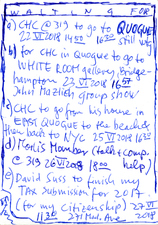 WAITING FOR
a) CHC @ 319 to go to QUOGUE
22 VI 2018 1400 1636 still w/g
b) for CHC in Quogue to go to
WHITE ROOM gallery, Bridge-
hampton 23 VI 2018 16
John Mazlish group show
c) CHC to go from his house in
EAST QUOGUE to the beaches
then back to NYC 25 VI 2018
d) Monis Mombay (talk + comp.
@ 319 26 VI 2018 1800 help)
e) David Suss to finish my
TAX submission for 2017
(for my citizenship) 27 VI
1130 271 Mad. Ave 2018